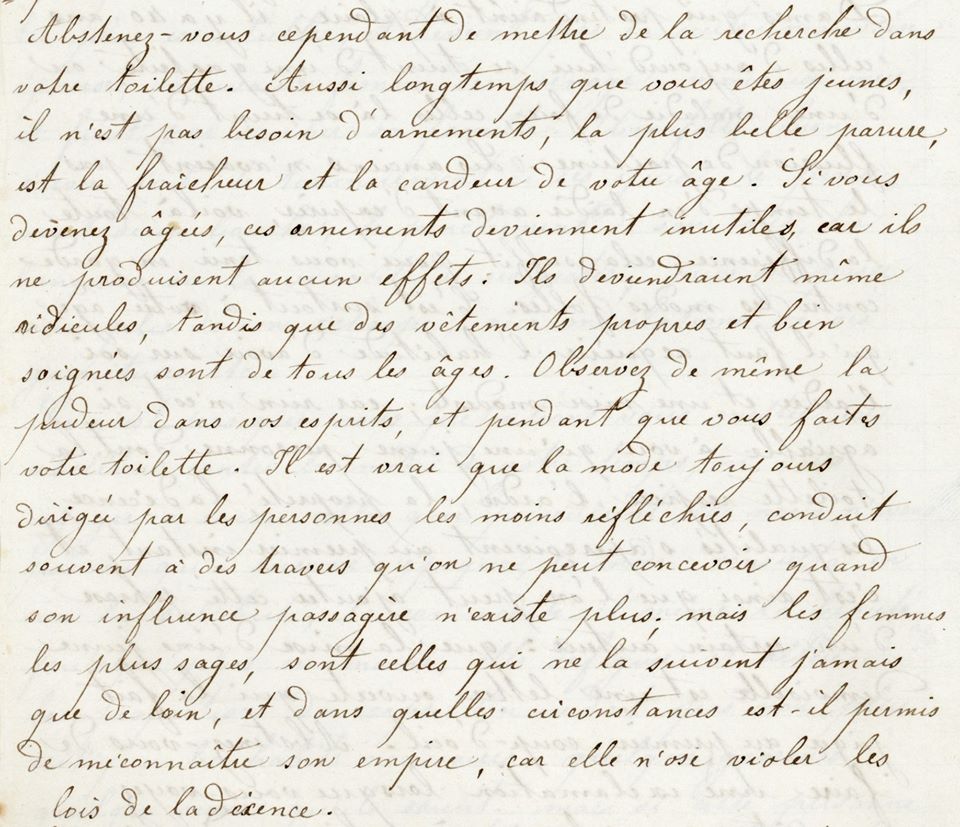 Abstenez-vous cependant de mettre de la recherche dans
votre toilette. Aussi longtemps que vous êtes jeunes,
il n'est pas besoin d'ornements, la plus belle parure,
est la fraîcheur et la candeur de votre âge. Si vous
devenez âgées, ces ornements deviennent inutiles, car ils
ne produisent aucun effets. Ils deviendraient même
ridicules, tandis que des vêtements propres et bien
soignées sont de tous les âges. Observez de même la
pudeur dans vos esprits, et pendant que vous faites
votre toilette. Il est vrai que la mode toujours
dirigée par les personnes les moins réfléchies, conduit
souvent à des travers qu'on ne peut concevoir quand
son influence passagère n'existe plus; mais les femmes
les plus sages, sont celles qui ne la suivent jamais
que de loin, et dans quelles circonstances est-il permis
de méconnaître son empire, car elle n'ose violer les
lois de la décence.